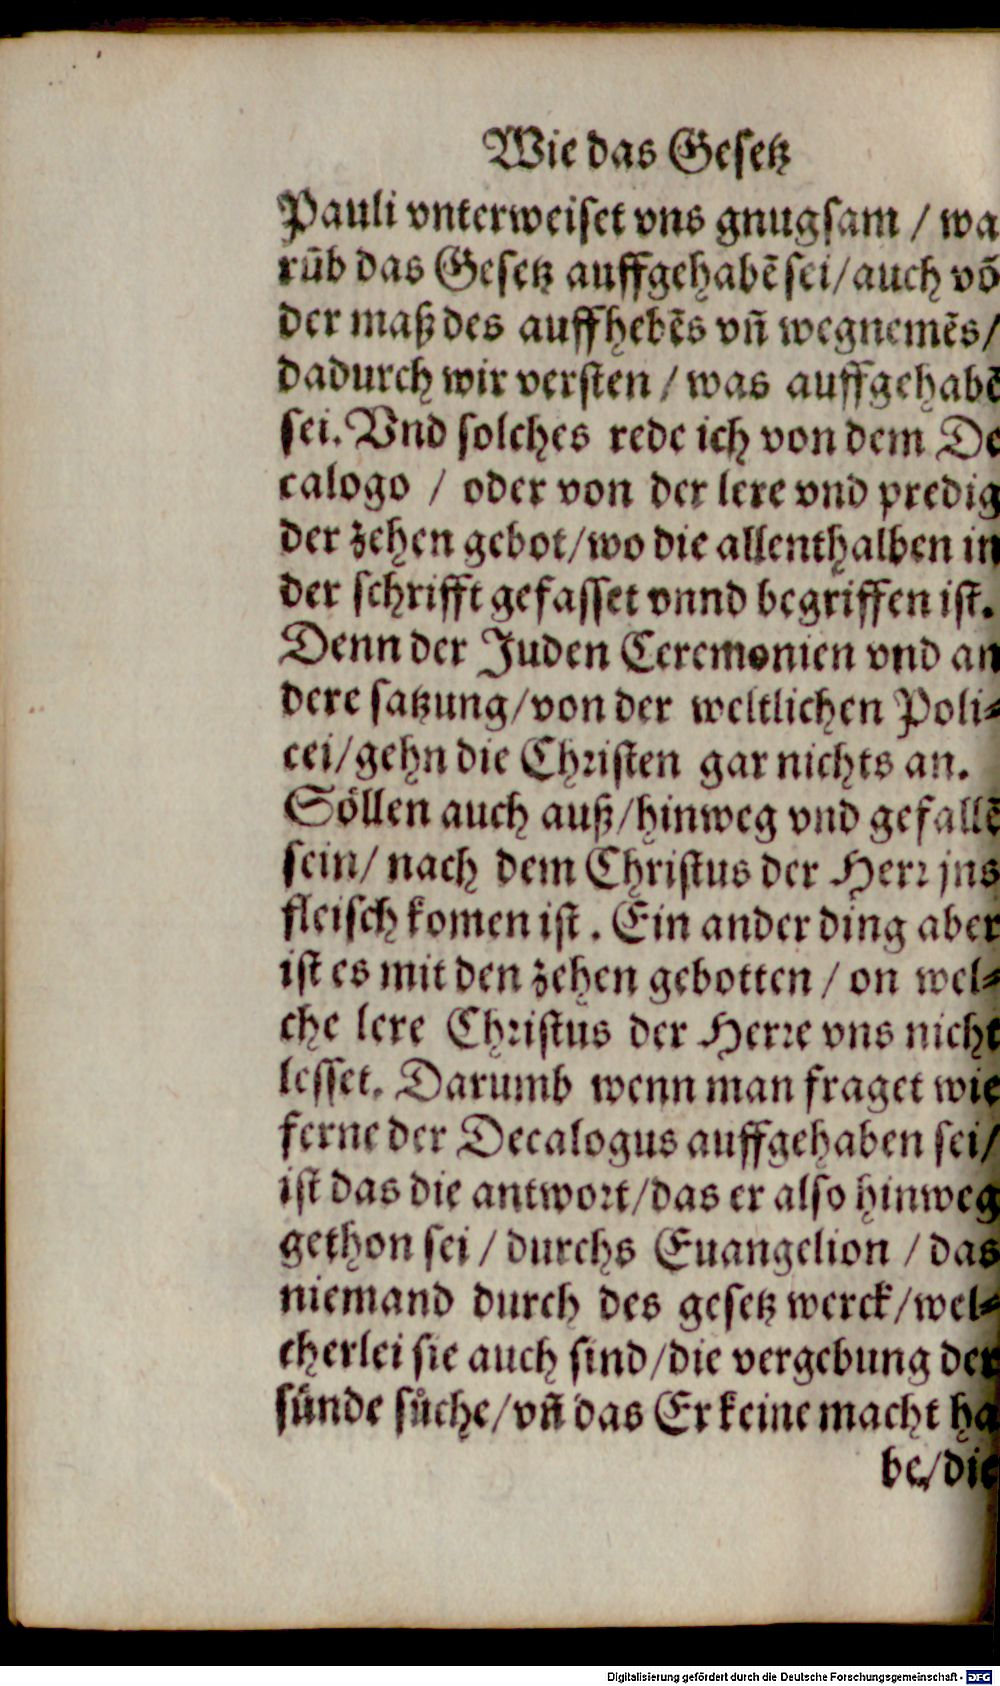 Wie das Gesetz
Pauli vnterweiset vns gnugsam / wa
rūb das Gesetz auffgehabē sei/auch vō
der maß des auffhebēs vñ wegnemēs/
dadurch wir versten / was auffgehabē
sei. Vnd solches rede ich von dem De
calogo / oder von der lere vnd predig
der zehen gebot/wo die allenthalben in
der schrifft gefasset vnnd begriffen ist.
Denn der Juden Ceremonien vnd an
dere satzung/von der weltlichen Poli⸗
cei/gehn die Christen gar nichts an.
Söllen auch auß/hinweg vnd gefallē
sein/ nach dem Christus der Herr jns
fleisch komen ist. Ein ander ding aber
ist es mit den zehen gebotten / on wel⸗
che lere Christus der Herre vns nicht
lesset. Darumb wenn man fraget wie
ferne der Decalogus auffgehaben sei/
ist das die antwort/das er also hinweg
gethon sei / durchs Euangelion / das
niemand durch des gesetz werck/wel⸗
cherlei sie auch sind/die vergebung der
sünde sůche/vñ das Er keine macht ha
be/die
Digitalisierung gefördert durch die Deutsche Forschungsgemeinschaft - DFG